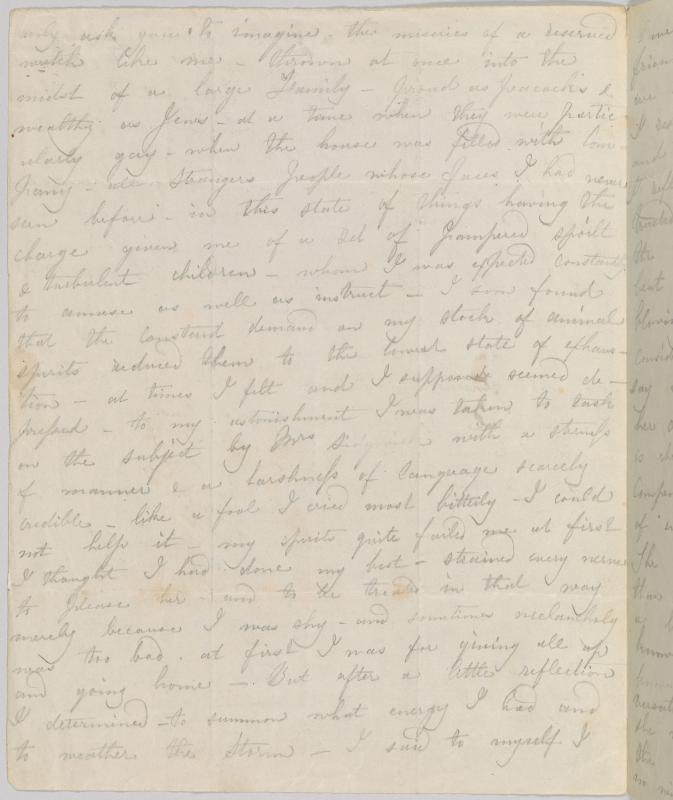 only ask you to imagine the miseries of a reserved
wretch like me - thrown at once into the
midst of a large Family - proud as peacocks &
wealthy as Jews - at a time when they were partic
ularly gay - when the house was filled with com-
pany - all Strangers people whose faces I had never
seen before - in this state of things having the
charge given me of a set of pampered spoilt
& turbulent children - whom I was expected constantly
to amuse as well as instruct - I soon found
that the constant demand on my stock of animal
spirits reduced them to the lowest state of exhaus-
tion - at times I felt and I suppose seemed de-
pressed - to my astonishment I was taken to task
on the subject by Mrs Sidgwick with a sternness
of manner & a harshness of language scarcely
credible - like a fool I cried most bitterly - I could
not help it - my spirits quite failed me at first
I thought I had done my best - strained every nerve
to please her - and to be treated in that way
merely because I was shy - and sometimes melancholy
was too bad. at first I was for giving all up
and going home - But after a little reflection
I determined - to summon what energy I had and
to weather the Storm - I said to myself I